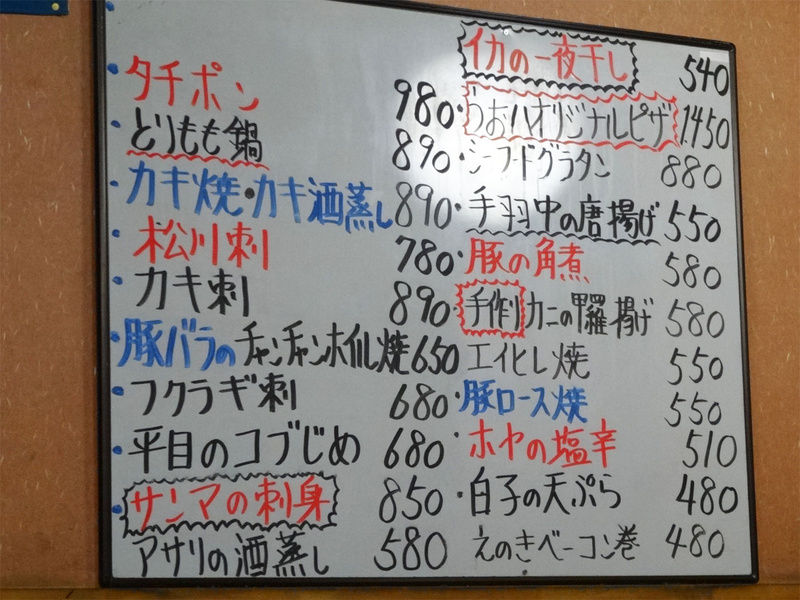 タチポン 980
とりもも鍋 890
カキ焼・カキ酒蒸し 890
松川刺 780
カキ刺 890
豚バラのチャンチャンホイル焼 650
フクラギ刺 680
平目のコブじめ 680
サンマの刺身 850
アサリの酒蒸し 580
イカの一夜干し 540
うおハオリジナルピザ 1450
シーフードグラタン 880
手羽中の唐揚げ 550
豚の角煮 580
手作りカニの甲羅揚げ 580
エイヒレ焼 550
豚ロース焼 550
ホヤの塩辛 510
白子の天ぷら 480
えのきベーコン巻 480